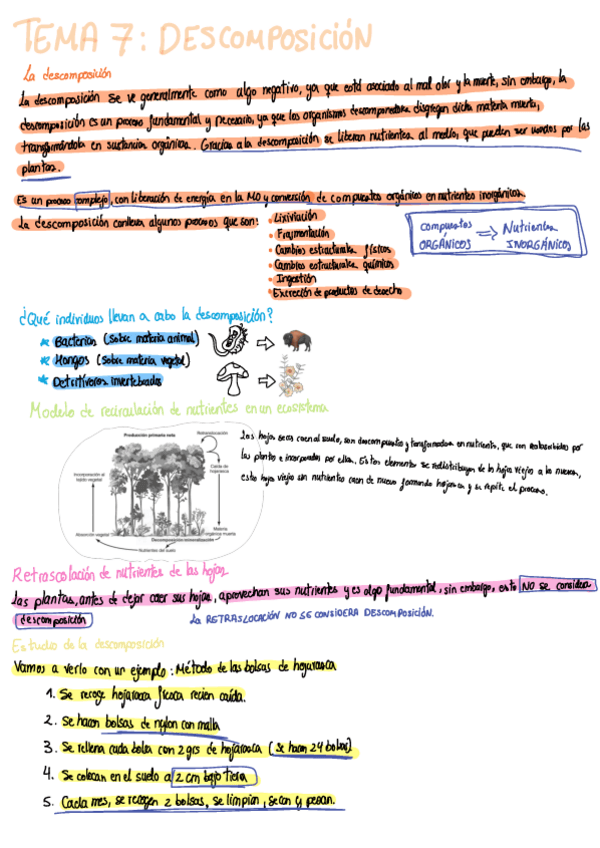 TEMA 7: DESCOMPOSICIÓN
La descomposición
La descomposición se ve generalmente como algo negativo, ya que está asociado al mal olor y la muerte, sin embargo, la
descomposición es un proceso fundamental y necesario, ya que los organismos descomponedores disgregan dicha materia muerta,
transformándola en sustancias orgánicas. Gracias a la descomposición se liberan nutrientes al medio, que pueden ser usados por las
plantas.
Es un proceso complejo, con liberación de energía en la MO y conversión de compuestos orgánicos en nutrientes inorgánicos.
La descomposición conlleva algunos procesos que son:
· Lixiviación
· Fragmentación
· Cambios estructurales físicos
· Cambios estructurales químicos
· Ingestión
· Excreción de productos de desecho
compuestos ORGÁNICOS => Nutrientes INORGÁNICOS
¿Qué individuos llevan a cabo la descomposición?
* Bacterias (sobre materia animal)
* Hongos (sobre materia vegetal)
* Detritívoros invertebrados
Modelo de recirculación de nutrientes en un ecosistema
Producción primaria neta
Retranslocación
Caída de hojarasca
Incorporación al tejido vegetal
Absorción vegetal
Materia orgánica muerta
Descomposición/mineralización
Nutrientes del suelo
Las hojas secas caen al suelo, son descompuestas y transformadas en nutrientes, que son reabsorbidos por
las plantas e incorporados por ellas. Estos elementos se redistribuyen de la hojas viejas a la nuevas,
estas hojas viejas sin nutrientes caen de nuevo formando hojarasca y se repite el proceso.
Retraslocación de nutrientes de las hojas
Las plantas, antes de dejar caer sus hojas, aprovechan sus nutrientes y es algo fundamental, sin embargo, esto NO se considera
descomposición
La RETRASLOCACIÓN NO SE CONSIDERA DESCOMPOSICIÓN.
Estudio de la descomposición
Vamos a verlo con un ejemplo: Método de las bolsas de hojarasca
1. Se recoge hojarasca fresca recién caída.
2. Se hacen bolsas de nylon con malla
3. Se rellena cada bolsa con 2 grs de hojarasca (se hacen 24 bolsas)
4. Se colocan en el suelo a 2 cm bajo tierra
5. Cada mes, se recogen 2 bolsas, se limpian, secan y pesan.